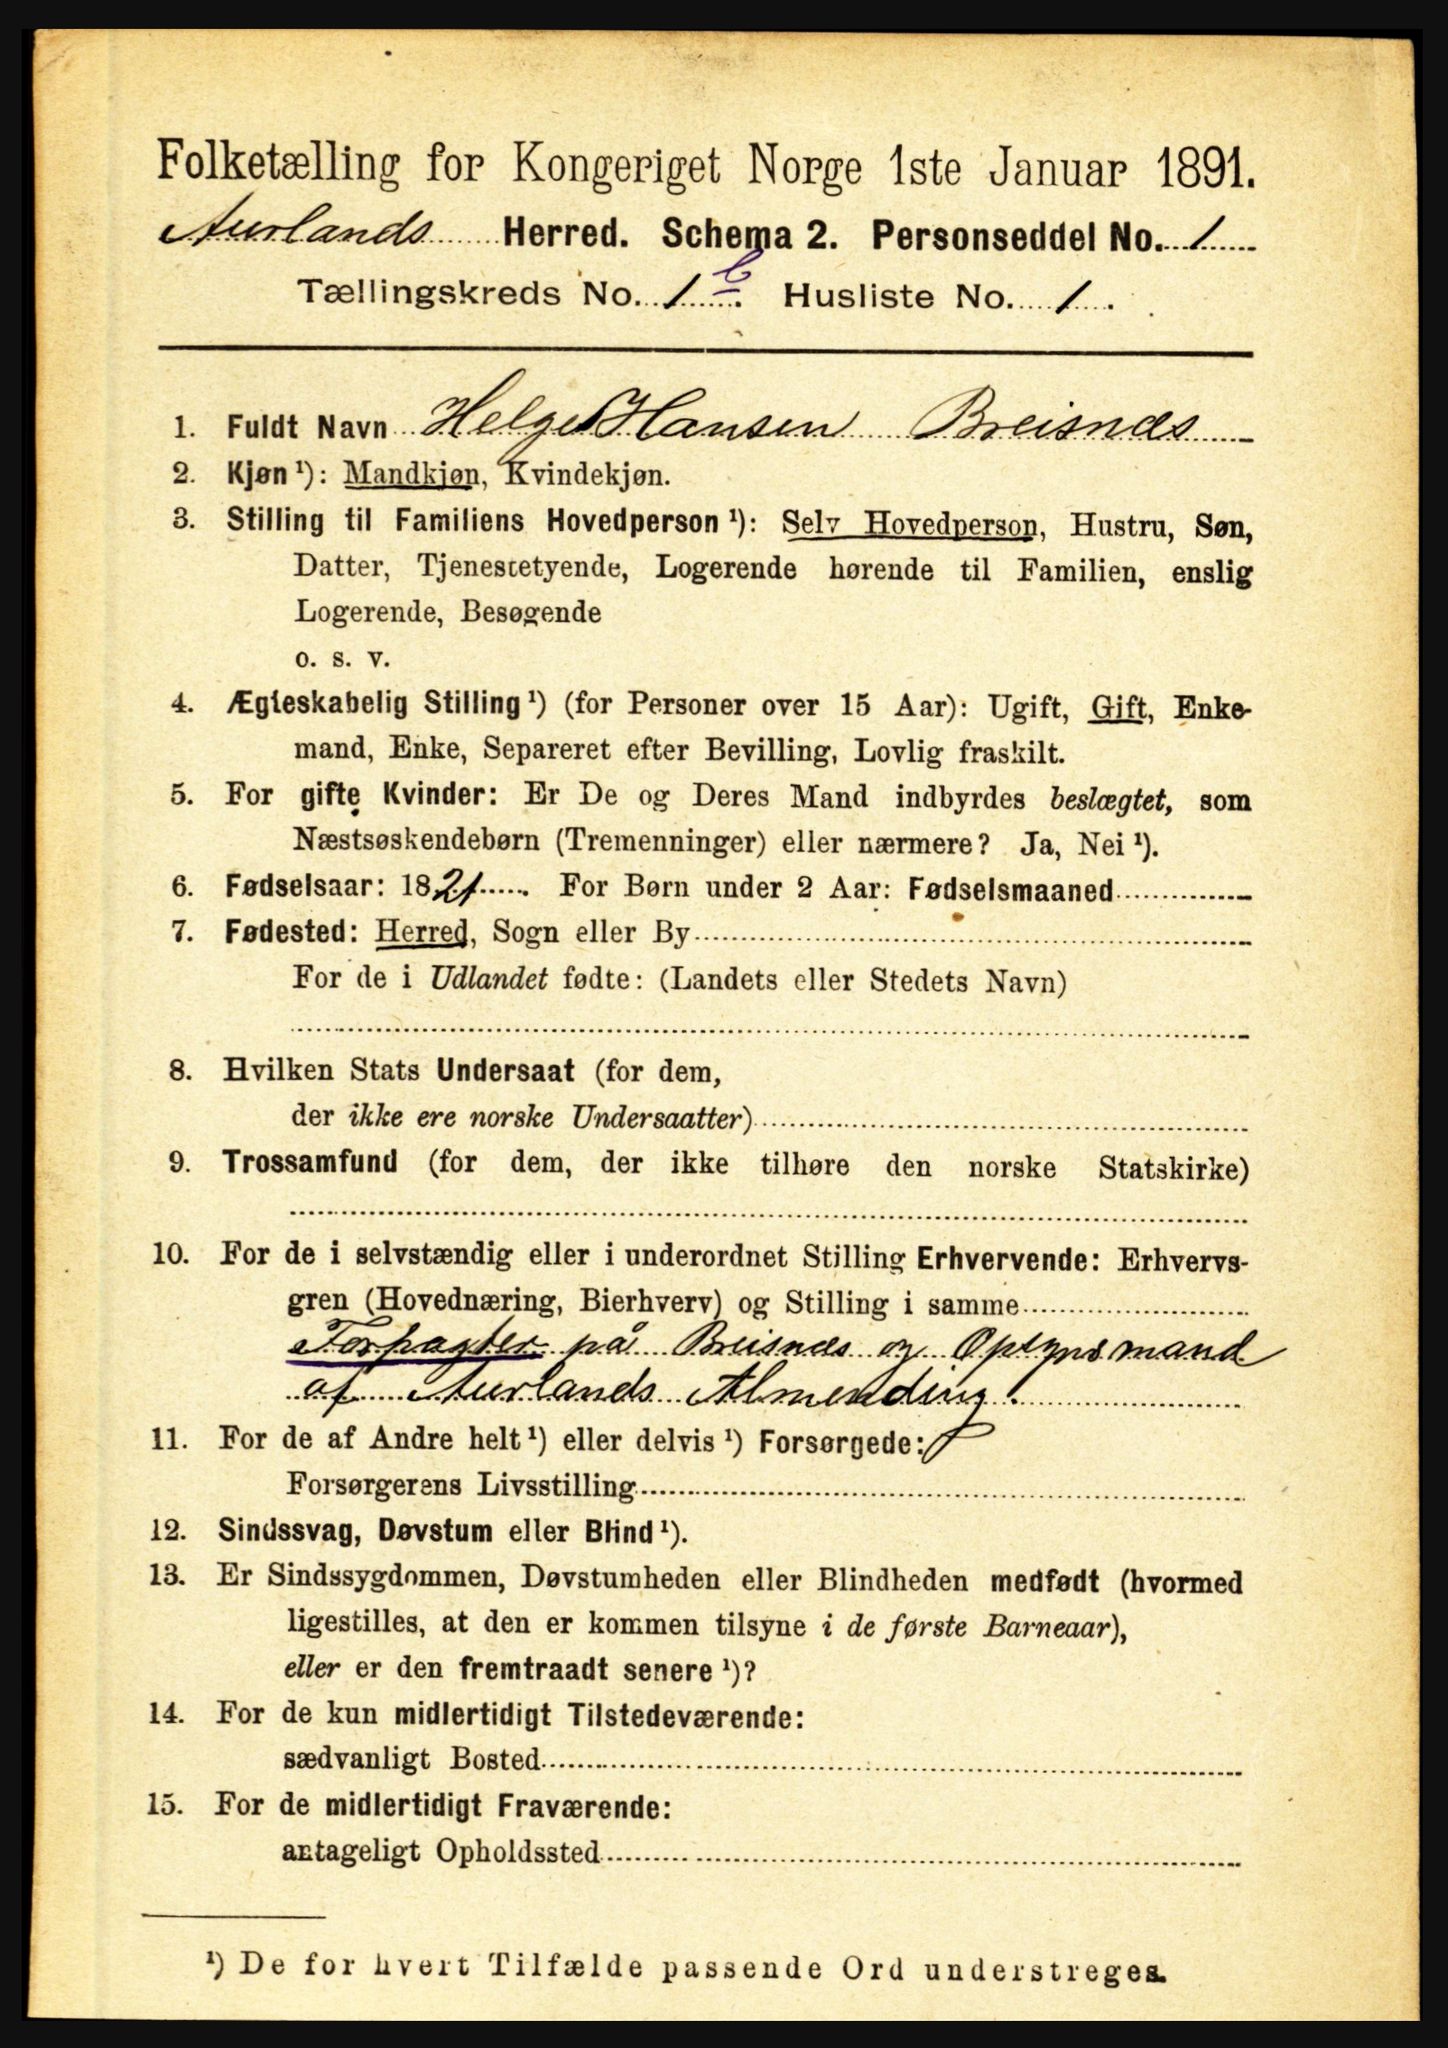 Folketælling for Kongeriget Norge 1ste Januar 1891.
Aurlands Herred. Schema 2. Personseddel No. 1
Tællingskreds No. 1 b. Husliste No. 1.
1. Fuldt Navn Helge Hansen Breisnæs
2. Kjøn ¹): Mandkjøn, Kvindekjøn.
3. Stilling til Familiens Hovedperson ¹): Selv Hovedperson, Hustru, Søn,
Datter, Tjenestetyende, Logerende hørende til Familien, enslig
Logerende, Besøgende
o. s. v.
4. Ægteskabelig Stilling ¹) (for Personer over 15 Aar): Ugift, Gift, Enke-
mand, Enke, Separeret efter Bevilling, Lovlig fraskilt.
5. For gifte Kvinder: Er De og Deres Mand indbyrdes beslægtet, som
Næstsøskendebørn (Tremenninger) eller nærmere? Ja, Nei ¹).
6. Fødselsaar: 1821. For Børn under 2 Aar: Fødselsmaaned
7. Fødested: Herred, Sogn eller By
For de i Udlandet fødte: (Landets eller Stedets Navn)
8. Hvilken Stats Undersaat (for dem,
der ikke ere norske Undersaatter)
9. Trossamfund (for dem, der ikke tilhøre den norske Statskirke)
10. For de i selvstændig eller i underordnet Stilling Erhvervende: Erhvervs-
gren (Hovednæring, Bierhverv) og Stilling i samme
Forpagter på Breisnæs og Opsynsmand
af Aurlands Almending.
11. For de af Andre helt ¹) eller delvis ¹) Forsørgede:
Forsørgerens Livsstilling
12. Sindssvag, Døvstum eller Blind ¹).
13. Er Sindssygdommen, Døvstumheden eller Blindheden medfødt (hvormed
ligestilles, at den er kommen tilsyne i de første Barneaar),
eller er den fremtraadt senere ¹)?
14. For de kun midlertidigt Tilstedeværende:
sædvanligt Bosted
15. For de midlertidigt Fraværende:
antageligt Opholdssted
¹) De for hvert Tilfælde passende Ord understreges.